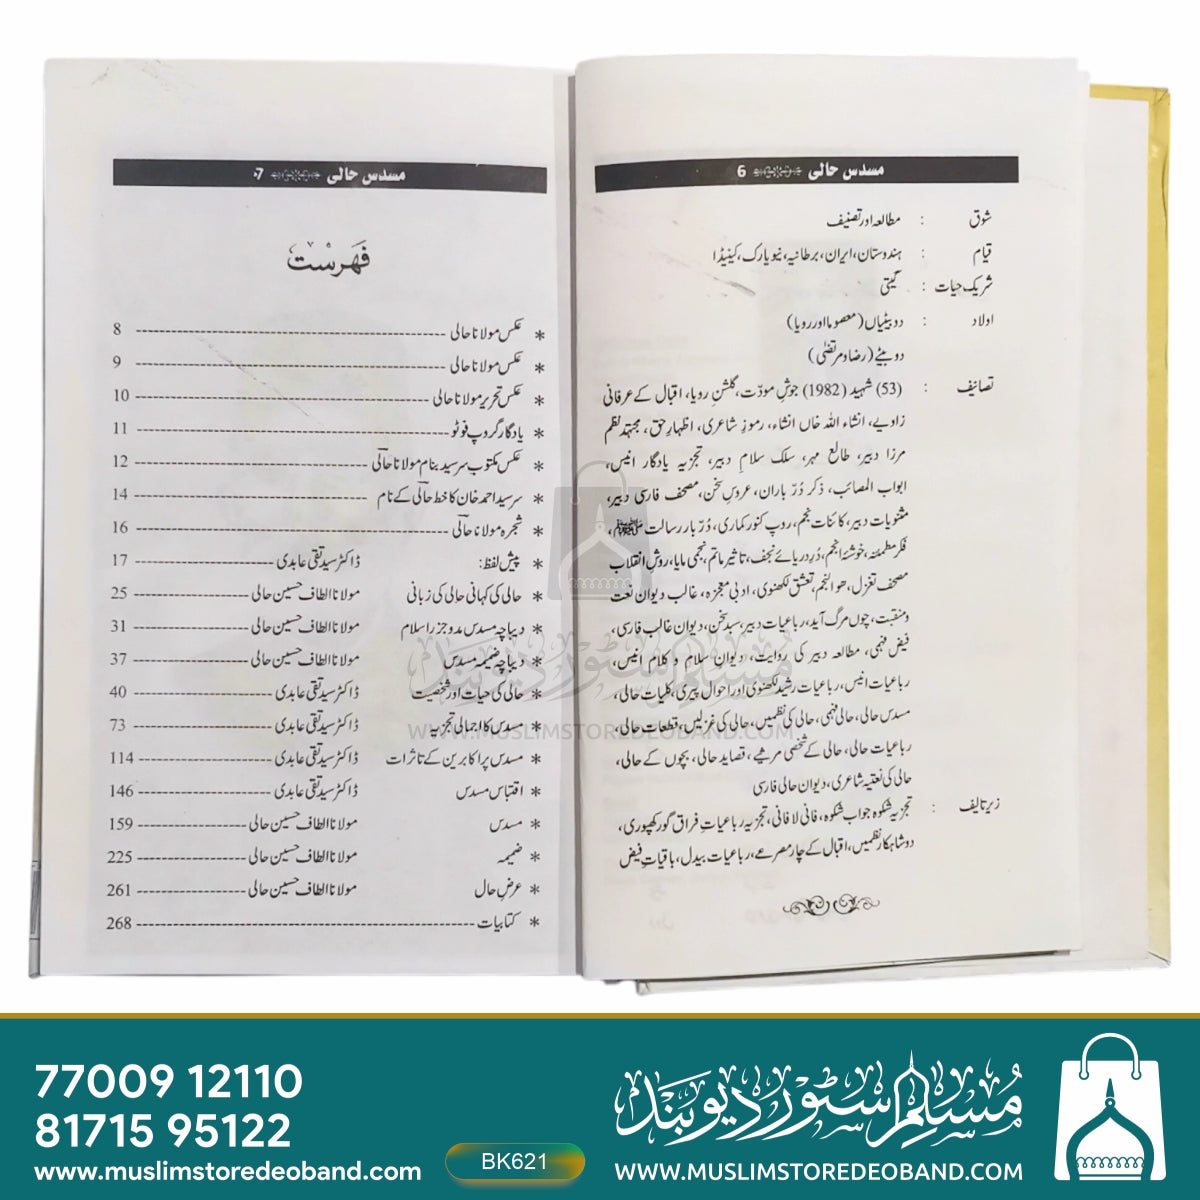 مسدس حالی 6
شوق : مطالعہ اور تصنیف
قیام : ہندوستان، ایران، برطانیہ، نیویارک، کینیڈا
شریک حیات : گیتی
اولاد : دو بیٹیاں (معصوما اور رویا)
دو بیٹے (رضا و مرتضٰی)
تصانیف : (53) شہید (1982) جوشِ مودّت، گلشنِ رویا، اقبال کے عرفانی
زاویے، انشاء اللہ خاں انشاء، رموزِ شاعری، اظہارِ حق، مجتہد نظم
مرزا دبیر، طالع مہر، سلک سلام دبیر، تجزیہ یادگار انیس،
ابواب المصائب، ذکر دُرّ باران، عروسِ سخن، مصحف فارسی دبیر،
مثنویات دبیر، کائنات نجم، روپ کنور کماری، دُرّبار رسالت ﷺ،
فکر مطمئنہ، خوشۂ انجم، دُرِ دریائے نجف، تاثیر ماتم، نجمی مایا، روشِ انقلاب
مصحف تغزل، ھوالنجم، تعشق لکھنوی، ادبی معجزہ، غالب دیوان نعت
و منقبت، چوں مرگ آید، رباعیات دبیر، سبد سخن، دیوان غالب فارسی،
فیض فہمی، مطالعہ دبیر کی روایت، دیوان سلام و کلام انیس،
رباعیات انیس، رباعیات رشید لکھنوی اور احوال پیری، کلیات حالی،
مسدس حالی، حالی فہمی، حالی کی نظمیں، حالی کی غزلیں، قطعات حالی،
رباعیات حالی، حالی کے شخصی مرثیے، قصاید حالی، بچوں کے حالی،
حالی کی نعتیہ شاعری، دیوان حالی فارسی
زیر تالیف : تجزیہ شکوہ جواب شکوہ، فانی لافانی، تجزیہ رباعیاتِ فراق گورکھپوری،
دو شاہکار نظمیں، اقبال کے چار مصرعے، رباعیات بیدل، باقیاتِ فیض
مسدس حالی 7
فہرست
* عکس مولانا حالی 8
* عکس مولانا حالی 9
* عکس تحریر مولانا حالی 10
* یادگار گروپ فوٹو 11
* عکس مکتوب سرسید بنام مولانا حالی 12
* سرسید احمد خان کا خط حالی کے نام 14
* شجرہ مولانا حالی 16
* پیش لفظ: ڈاکٹر سید تقی عابدی 17
* حالی کی کہانی حالی کی زبانی مولانا الطاف حسین حالی 25
* دیباچہ مسدس مدوجزر اسلام مولانا الطاف حسین حالی 31
* دیباچہ ضمیمہ مسدس مولانا الطاف حسین حالی 37
* حالی کی حیات اور شخصیت ڈاکٹر سید تقی عابدی 40
* مسدس کا اجمالی تجزیہ ڈاکٹر سید تقی عابدی 73
* مسدس پر اکابرین کے تاثرات ڈاکٹر سید تقی عابدی 114
* اقتباس مسدس ڈاکٹر سید تقی عابدی 146
* مسدس مولانا الطاف حسین حالی 159
* ضمیمہ مولانا الطاف حسین حالی 225
* عرض حال مولانا الطاف حسین حالی 261
* کتابیات 268
مسلم سٹور دیوبند
WWW.MUSLIMSTOREDEOBAND.COM
77009 12110
81715 95122
www.muslimstoredeoband.com
BK621
مسلم سٹور دیوبند
WWW.MUSLIMSTOREDEOBAND.COM